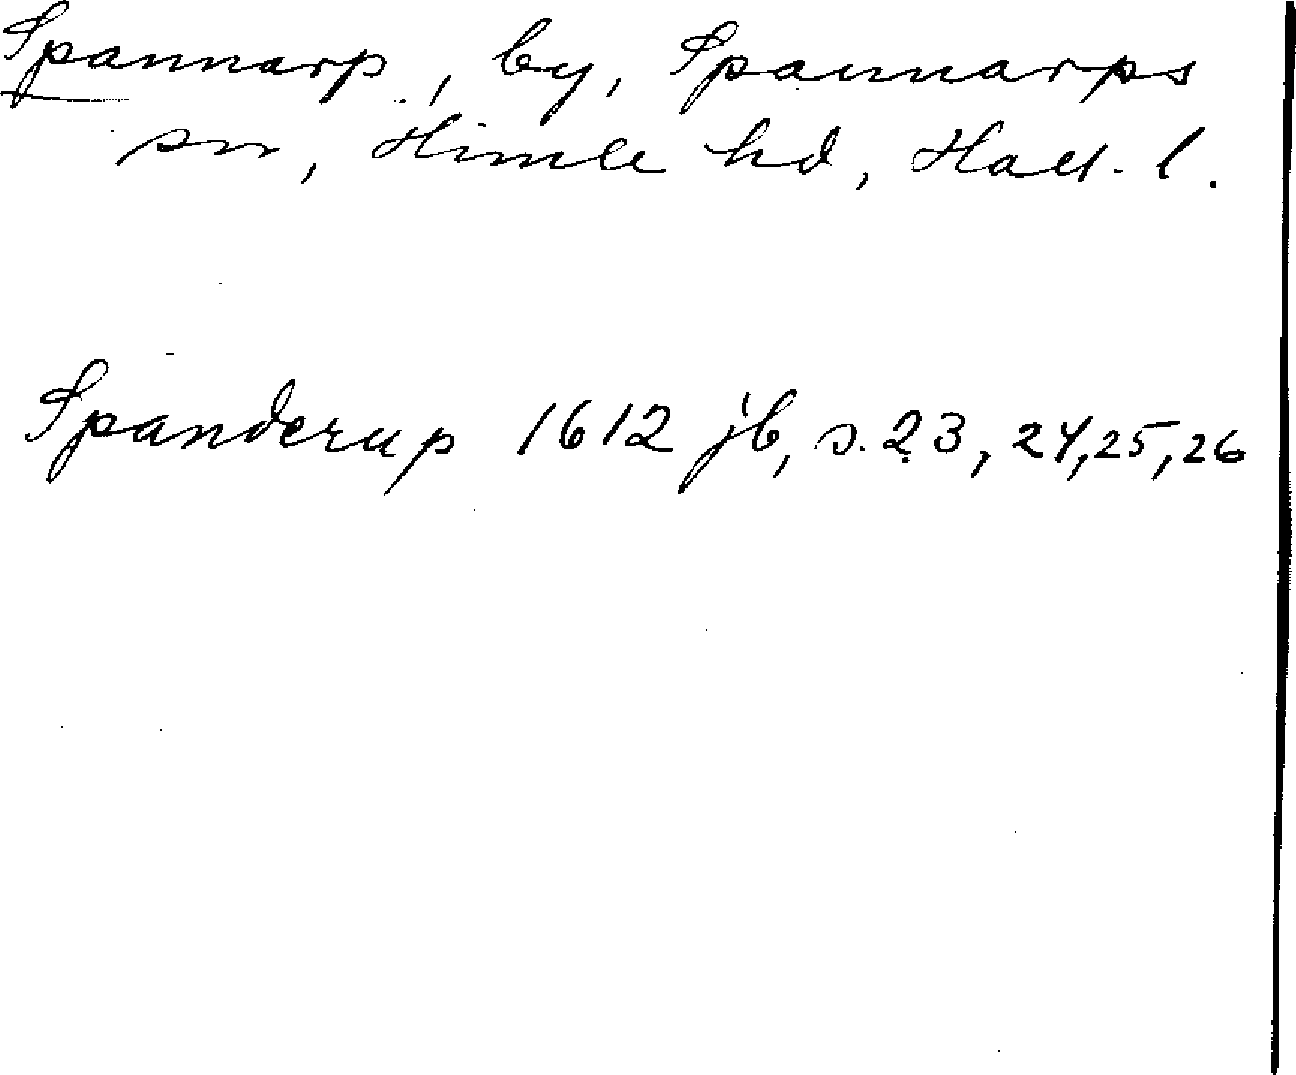 Spannarp, by, Spannarps
sn, Himle hd, Hall. l.
Spanderup 1612 jb, s. 23, 24, 25, 26